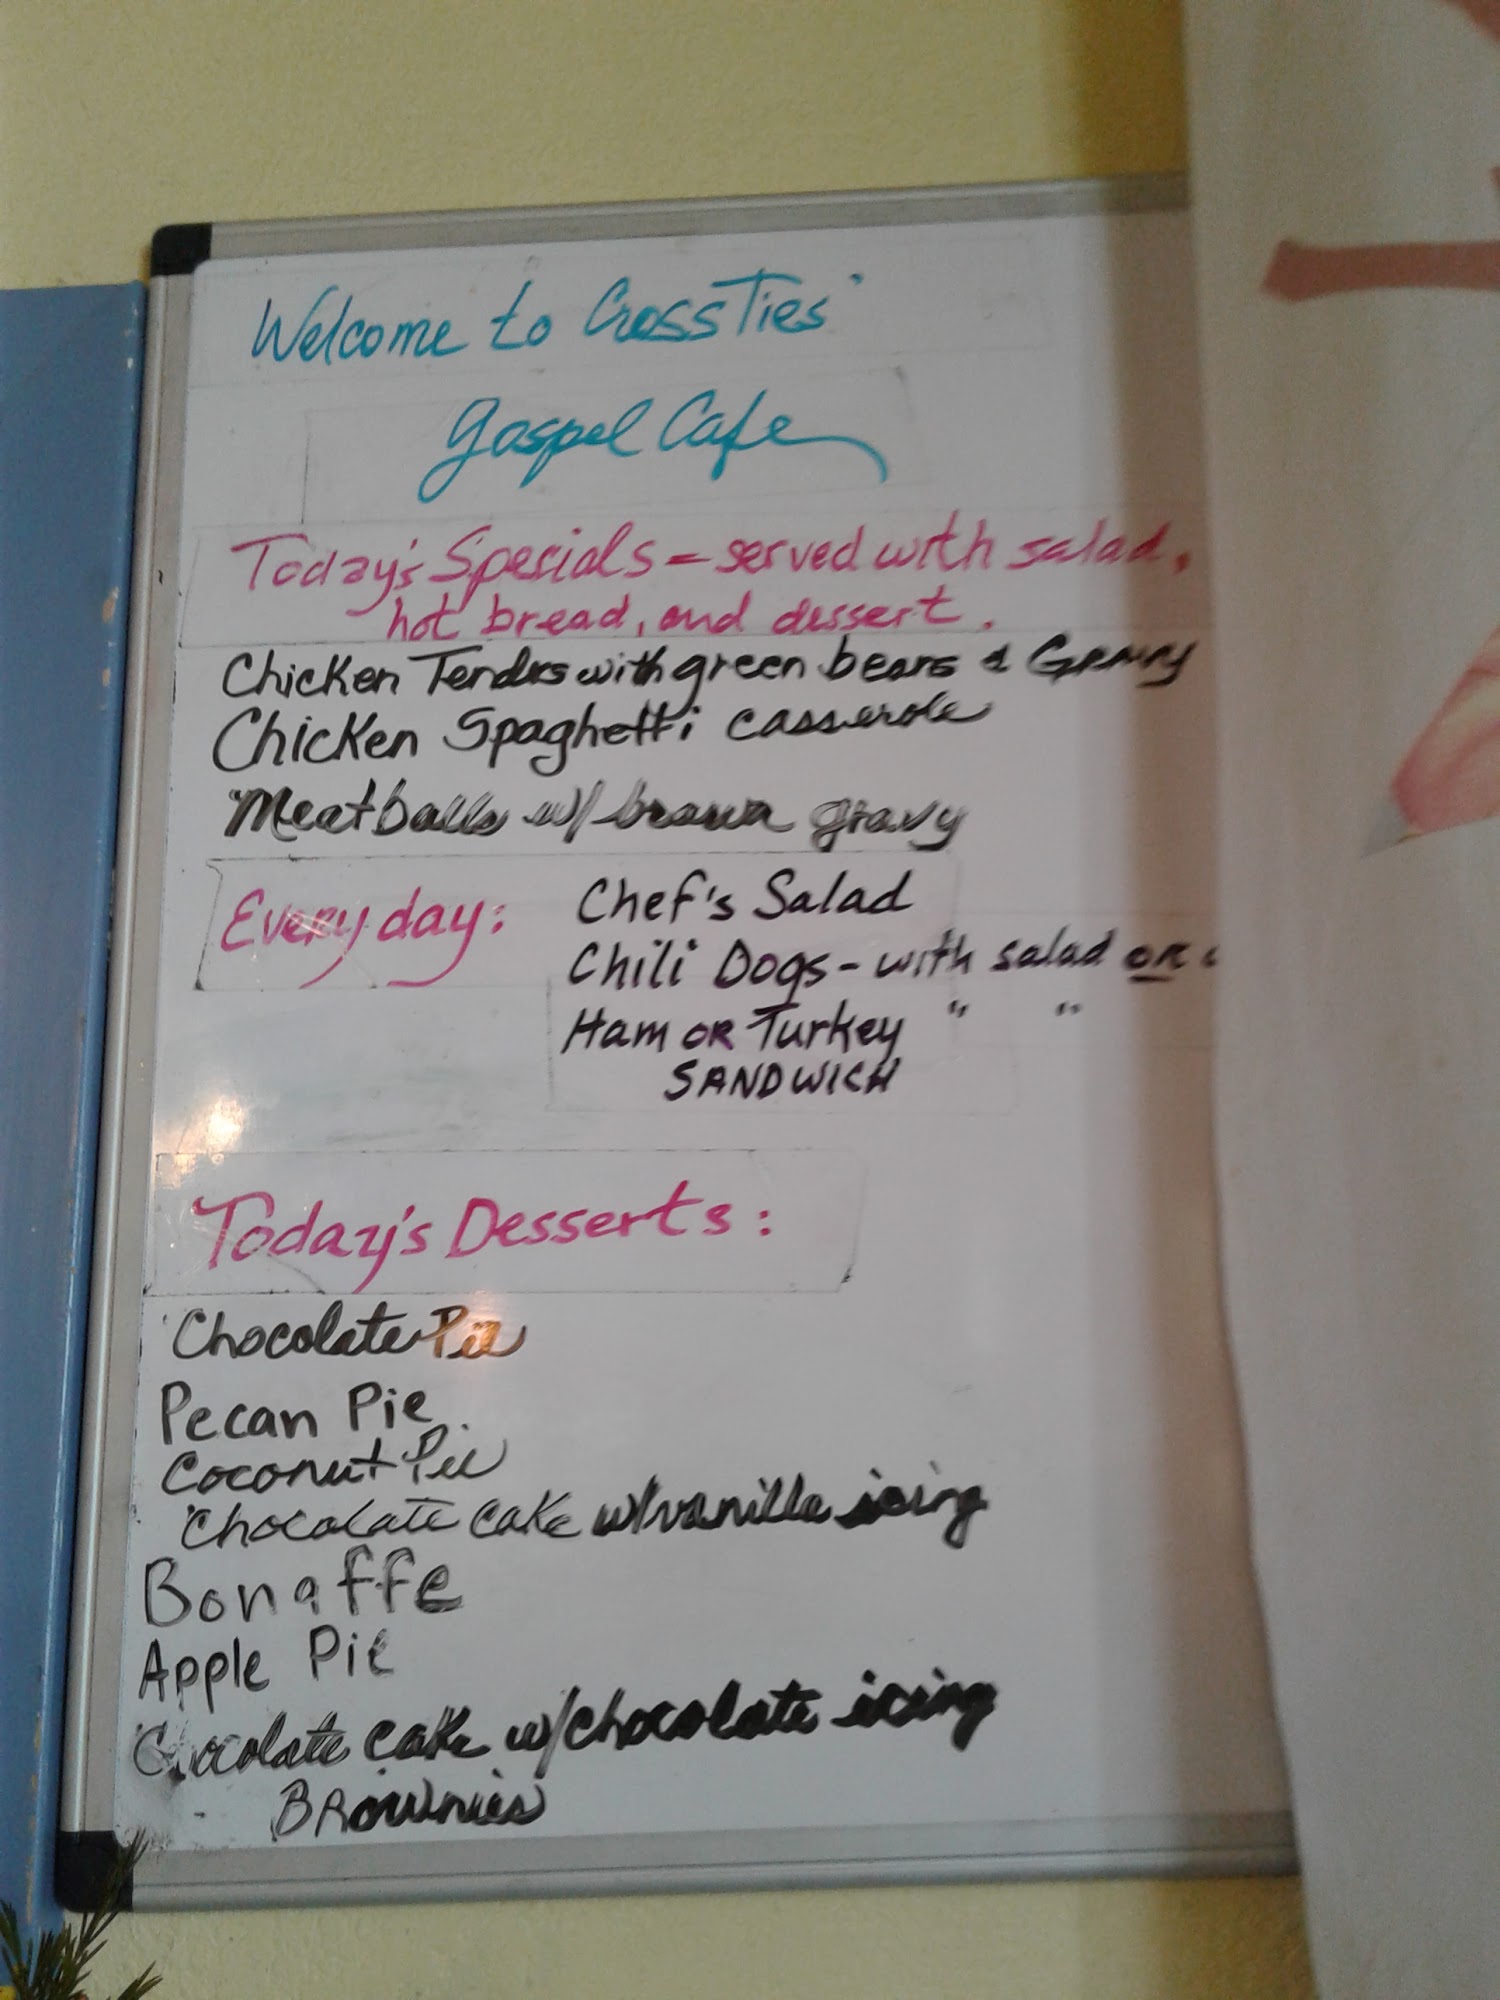 Welcome to CrossTies'
Gospel Cafe
Today's Specials - served with salad,
hot bread, and dessert.
Chicken Tenders with green beans & Gravy
Chicken Spaghetti casserole
Meatballs w/ brown gravy
Everyday: Chef's Salad
Chili Dogs - with salad OR
Ham OR Turkey " "
SANDWICH
Today's Desserts:
Chocolate Pie
Pecan Pie
Coconut Pie
Chocolate cake w/vanilla icing
Bonaffe
Apple Pie
Chocolate cake w/chocolate icing
Brownies